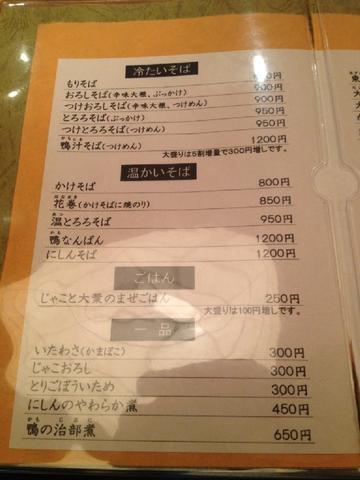 冷たいそば
もりそば 円
おろしそば(辛味大根、ぶっかけ) 900円
つけおろしそば(辛味大根、つけめん) 900円
とろろそば(ぶっかけ) 950円
つけとろろそば(つけめん) 950円
鴨汁そば(つけめん) 1200円
大盛りは5割増量で300円増しです。
温かいそば
かけそば 800円
花巻(かけそばに焼のり) 850円
温とろろそば 950円
鴨なんばん 1200円
にしんそば 1200円
ごはん
じゃこと大葉のまぜごはん 250円
大盛りは100円増しです。
一品
いたわさ(かまぼこ) 300円
じゃこおろし 300円
とりごぼういため 300円
にしんのやわらか煮 450円
鴨の治部煮 650円